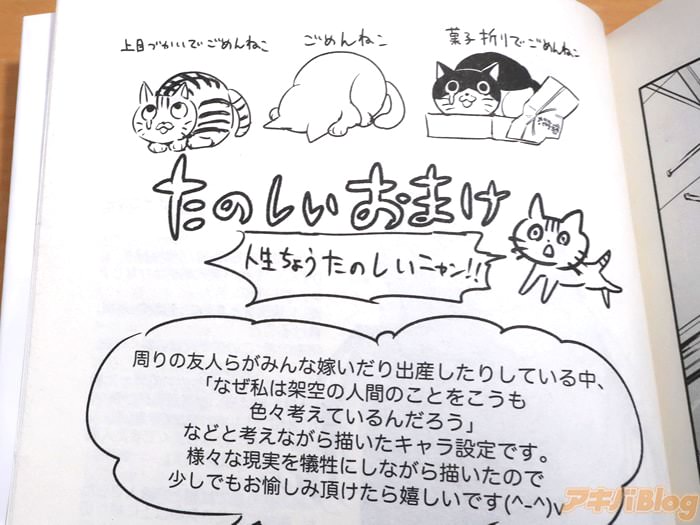 上目づかいでごめんねこ
ごめんねこ
菓子折りでごめんねこ
たのしいおまけ
人生ちょうたのしいニャン!!
周りの友人らがみんな嫁いだり出産したりしている中、
「なぜ私は架空の人間のことをこうも
色々考えているんだろう」
などと考えながら描いたキャラ設定です。
様々な現実を犠牲にしながら描いたので
少しでもお愉しみ頂けたら嬉しいです(^-^)v
アキバBlog